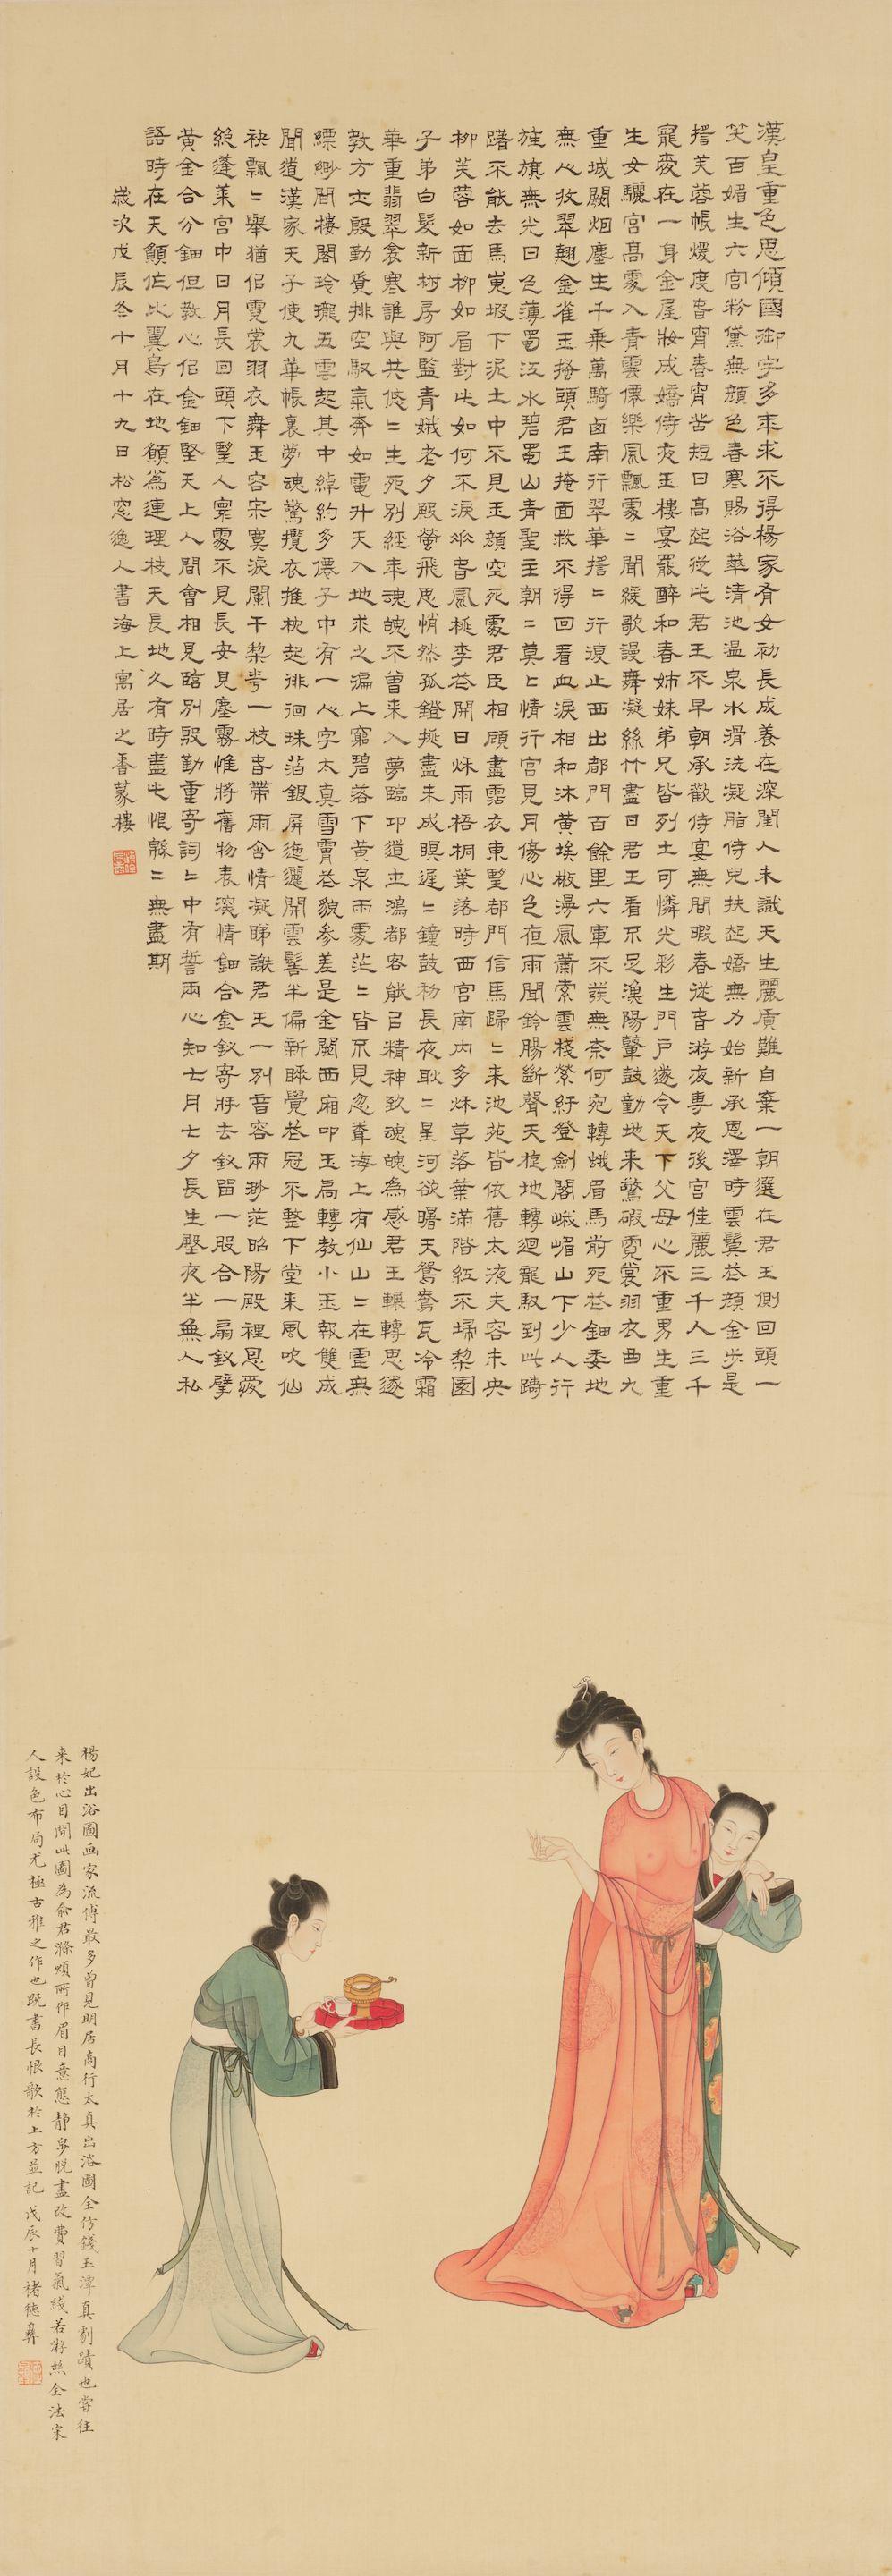 漢皇重色思傾國御宇多年求不得楊家有女初長成養在深閨人未識天生麗質難自棄一朝選在君王側回頭一
笑百媚生六宮粉黛無顏色春寒賜浴華清池溫泉水滑洗凝脂侍兒扶起嬌無力始新承恩澤時雲鬢花顏金步是
搖芙蓉帳煖度春宵春宵苦短日高起從此君王不早朝承歡侍宴無閒暇春從春游夜專夜後宮佳麗三千人三千
寵愛在一身金屋妝成嬌侍夜玉樓宴罷醉和春姊妹弟兄皆列土可憐光彩生門戶遂令天下父母心不重男生重
生女驪宮高處入青雲僊樂風飄處〻聞緩歌謾舞凝絲竹盡日君王看不足漁陽鼙鼓動地來驚破霓裳羽衣曲九
重城闕烟塵生千乘萬騎西南行翠華搖〻行復止西出都門百餘里六軍不發無奈何宛轉蛾眉馬前死花鈿委地
無心收翠翹金雀玉搔頭君王掩面救不得回看血淚相和沐黃埃散漫風蕭索雲棧縈紆登劍閣峨嵋山下少人行
旌旗無光日色薄蜀江水碧蜀山青聖主朝〻莫〻情行宮見月傷心色夜雨聞鈴腸斷聲天旋地轉迴龍馭到此躊
躇不能去馬嵬坡下泥土中不見玉顏空死處君臣相顧盡霑衣東望都門信馬歸〻來池苑皆依舊太液夫容未央
柳芙蓉如面柳如眉對此如何不淚垂春風桃李花開日秋雨梧桐葉落時西宮南內多秋草落葉滿階紅不埽梨園
子弟白髮新椒房阿監青娥老夕殿螢飛思悄然孤鐙挑盡未成瞑遲〻鐘鼓初長夜耿〻星河欲曙天鴛鴦瓦冷霜
華重翡翠衾寒誰與共悠〻生死別經年魂魄不曾來入夢臨邛道士鴻都客能以精神致魂魄為感君王輾轉思遂
教方士殷勤覓排空馭氣奔如電升天入地求之遍上窮碧落下黃泉兩處茫〻皆不見忽聞海上有仙山〻在虛無
縹緲間樓閣玲瓏五雲起其中綽約多僊子中有一人字太真雪膚花貌參差是金闕西廂叩玉扃轉教小玉報雙成
聞道漢家天子使九華帳裏夢魂驚攬衣推枕起徘徊珠箔銀屏迤邐開雲鬢半偏新睡覺花冠不整下堂來風吹仙
袂飄〻舉猶似霓裳羽衣舞玉容寂寞淚闌干梨花一枝春帶雨含情凝睇謝君王一別音容兩渺茫昭陽殿裡恩愛
絕蓬萊宮中日月長回頭下望人寰處不見長安見塵霧惟將舊物表深情鈿合金釵寄將去釵留一股合一扇釵擘
黃金合分鈿但教心似金鈿堅天上人間會相見臨別殷勤重寄詞〻中有誓兩心知七月七夕長生殿夜半無人私
語時在天願作比翼鳥在地願為連理枝天長地久有時盡此恨緜〻無盡期
歲次戊辰冬十月十九日松窓逸人書海上寓居之香篆樓
楊妃出浴圖画家流傳最多曾見明居商行太真出浴圖全仿錢玉潭真剧蹟也嘗往
来於心目間此圖為俞君滌煩所作眉目意態静穆脫盡改費習氣綫若游絲全法宋
人設色布局尤極古雅之作也既書長恨歌於上方並記戊辰十月褚德彝